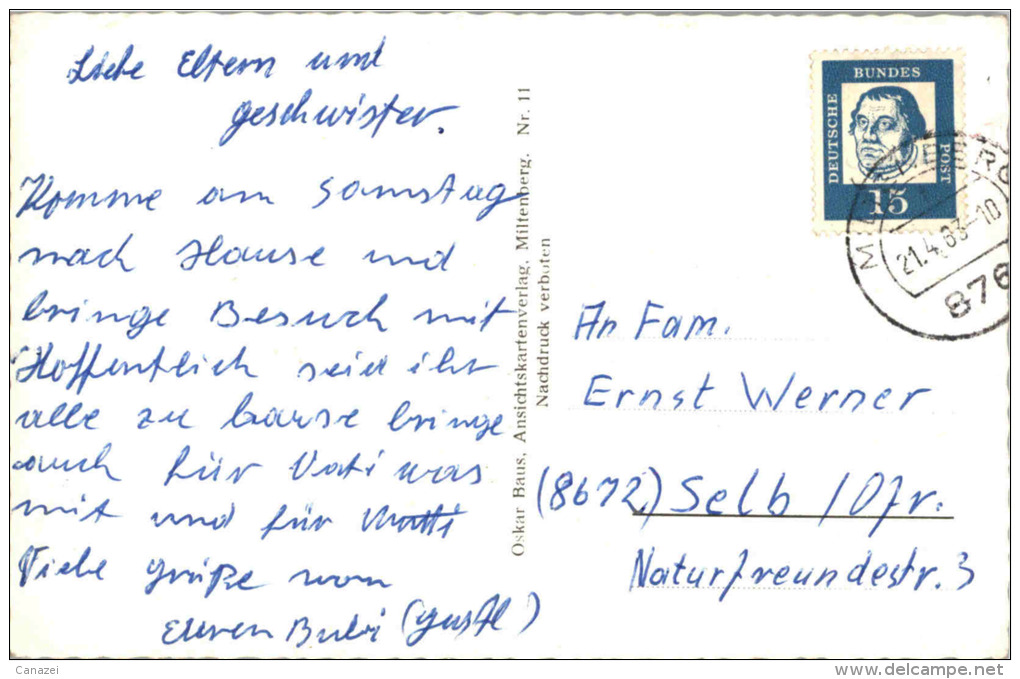 Liebe Eltern und
geschwister.
Komme am Samstag
nach Hause und
bringe Besuch mit
Hoffentlich seid ihr
alle zu hause bringe
auch für Vati was
mit und für Mutti
Viele grüße von
Euren Bubi (gustl)
Oskar Baus, Ansichtskartenverlag, Miltenberg. Nr. 11
Nachdruck verboten
DEUTSCHE
BUNDES
POST
15
21.4.63-10
876
An Fam.
Ernst Werner
(8672) Selb / Ofr.
Naturfreundestr. 3
Canazei
www.delcampe.net